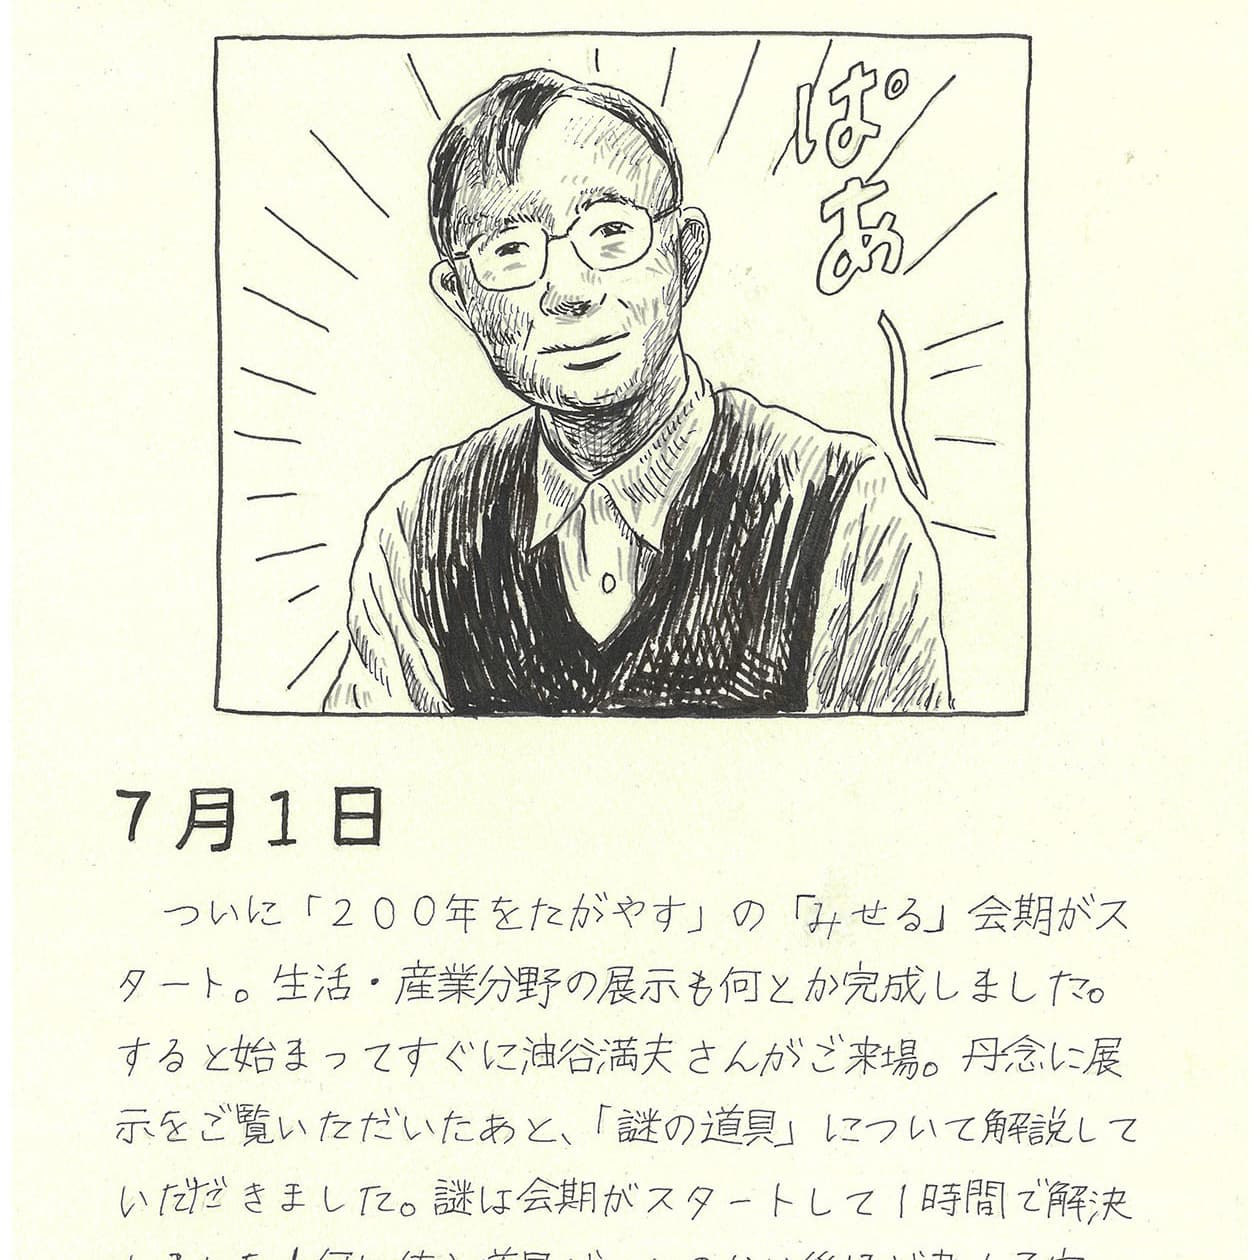 ぱぁー
7月1日
ついに「200年をたがやす」の「みせる」会期がス
タート。生活・産業分野の展示も何とか完成しました。
すると始まってすぐに油谷満夫さんがご来場。丹念に展
示をご覧いただいたあと、「謎の道具」について解説して
いただきました。謎は会期がスタートして1時間で解決